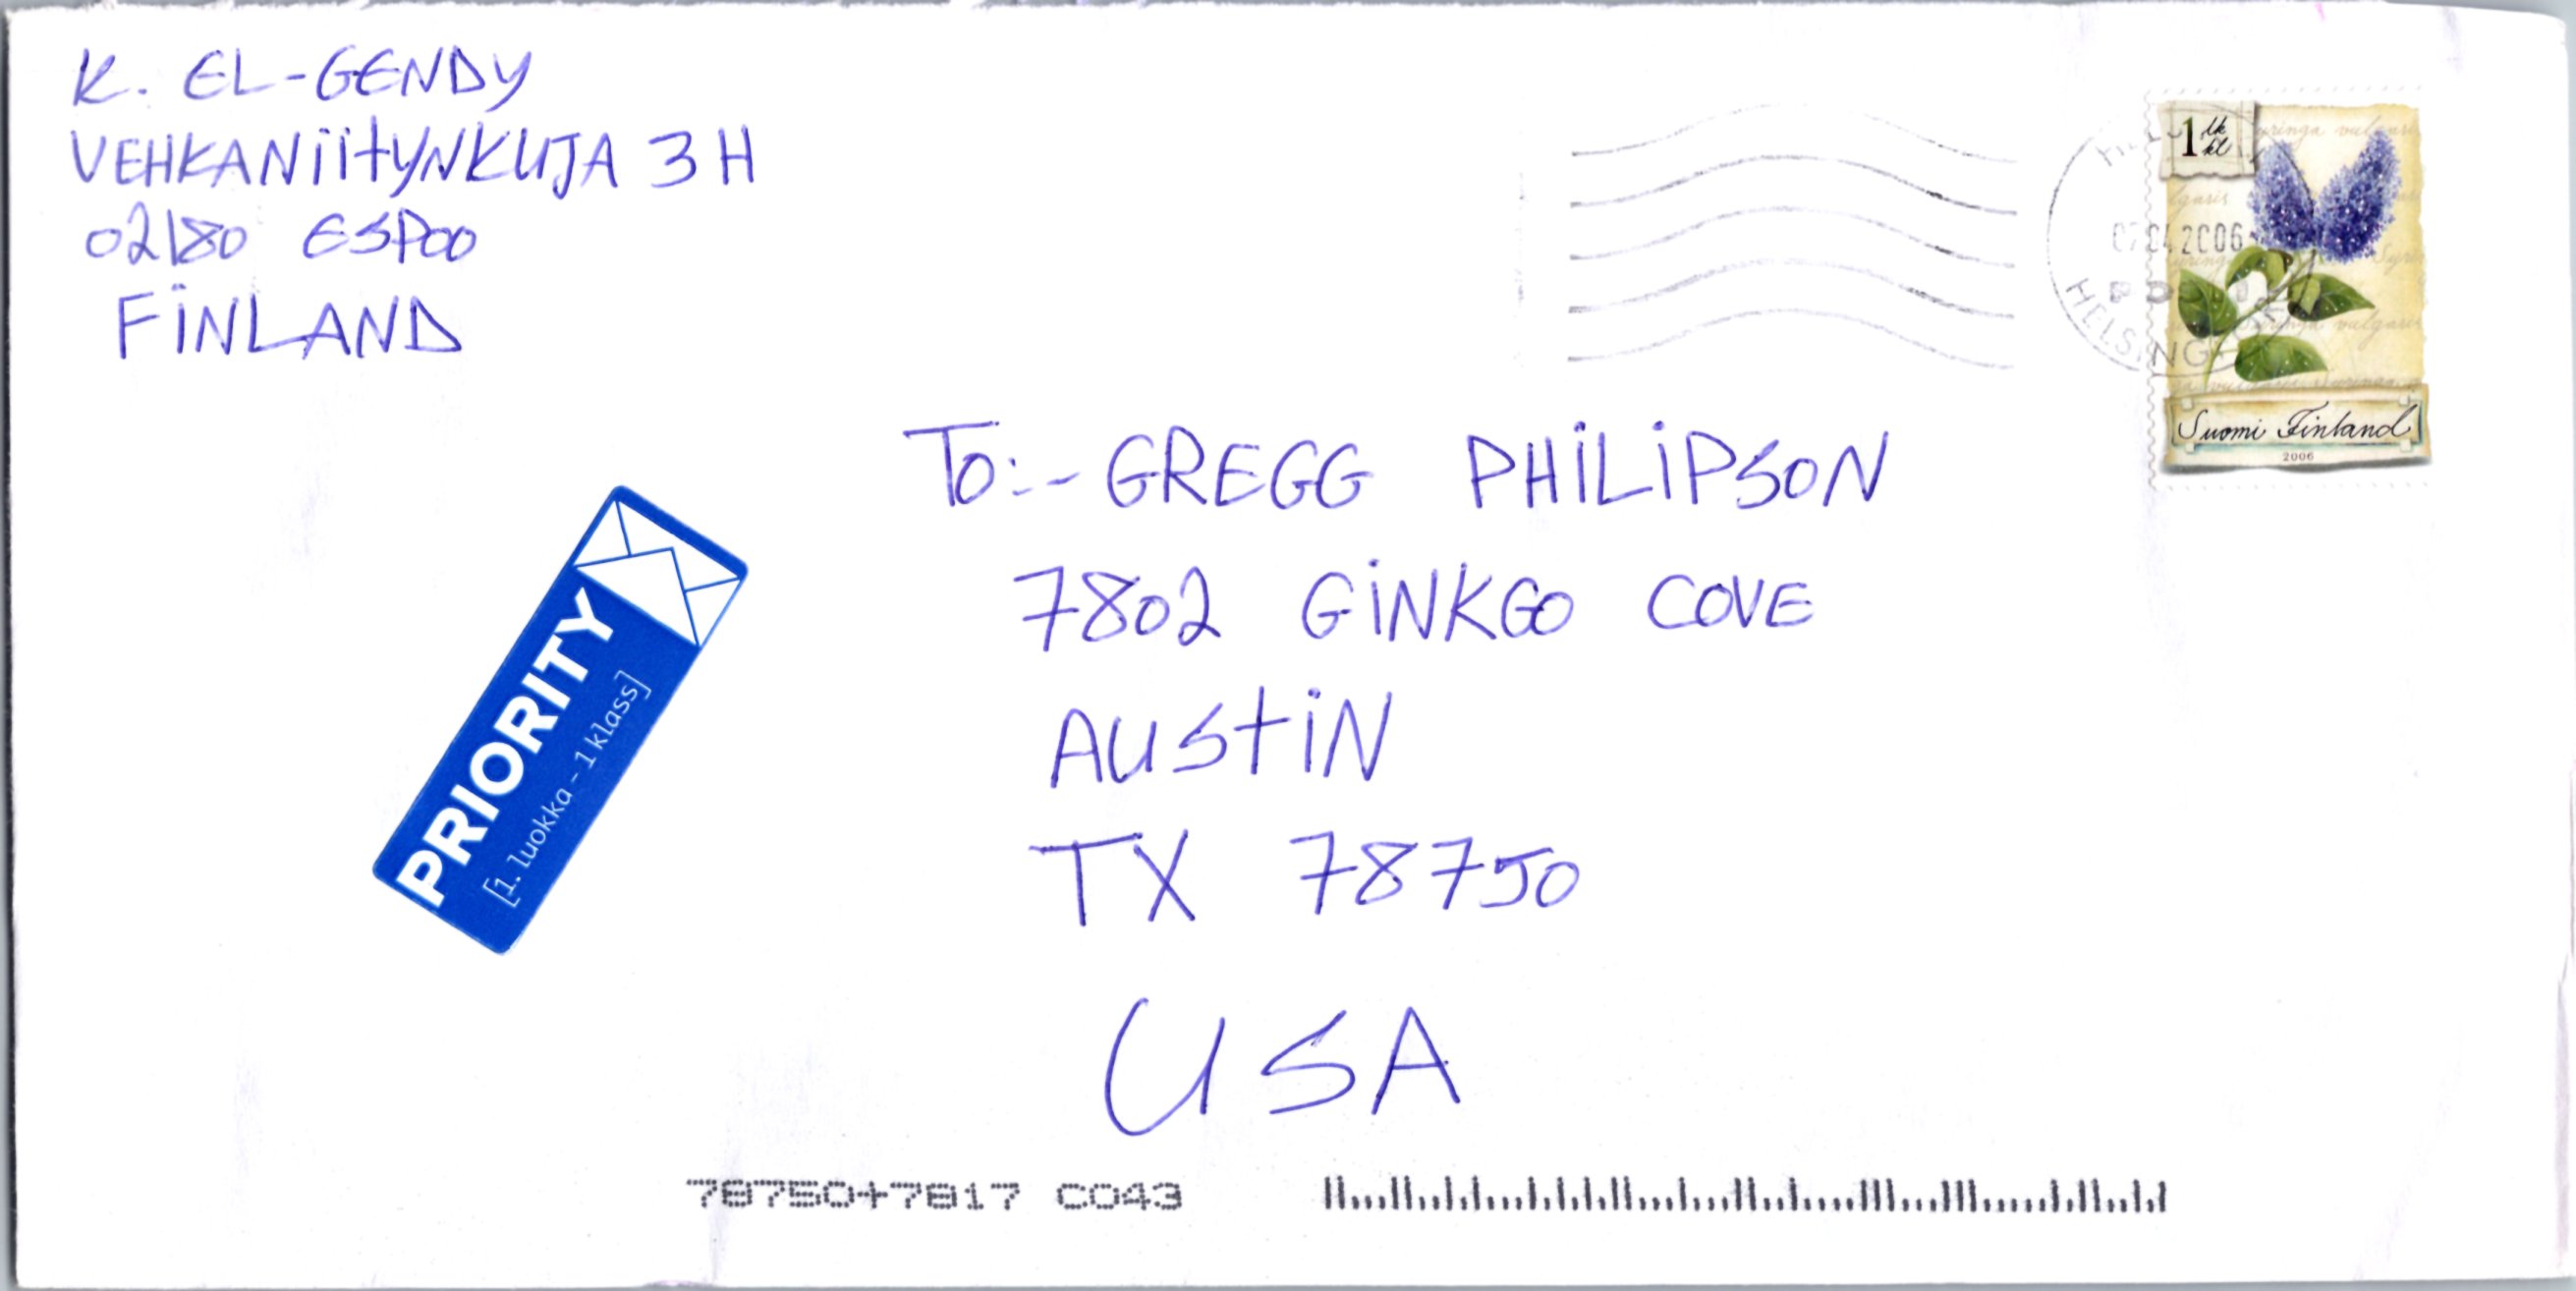 K. EL-GENDY
VEHKANiitYNKUJA 3 H
02180 ESPOO
FiNLAND
1 lk
kl
Suomi Finland
2006
HELSING
To:- GREGG PHiLiPSON
7802 GiNKGO COVE
AUStiN
TX 78750
USA
PRIORITY
[1. luokka - 1 klass]
78750+7817 C043